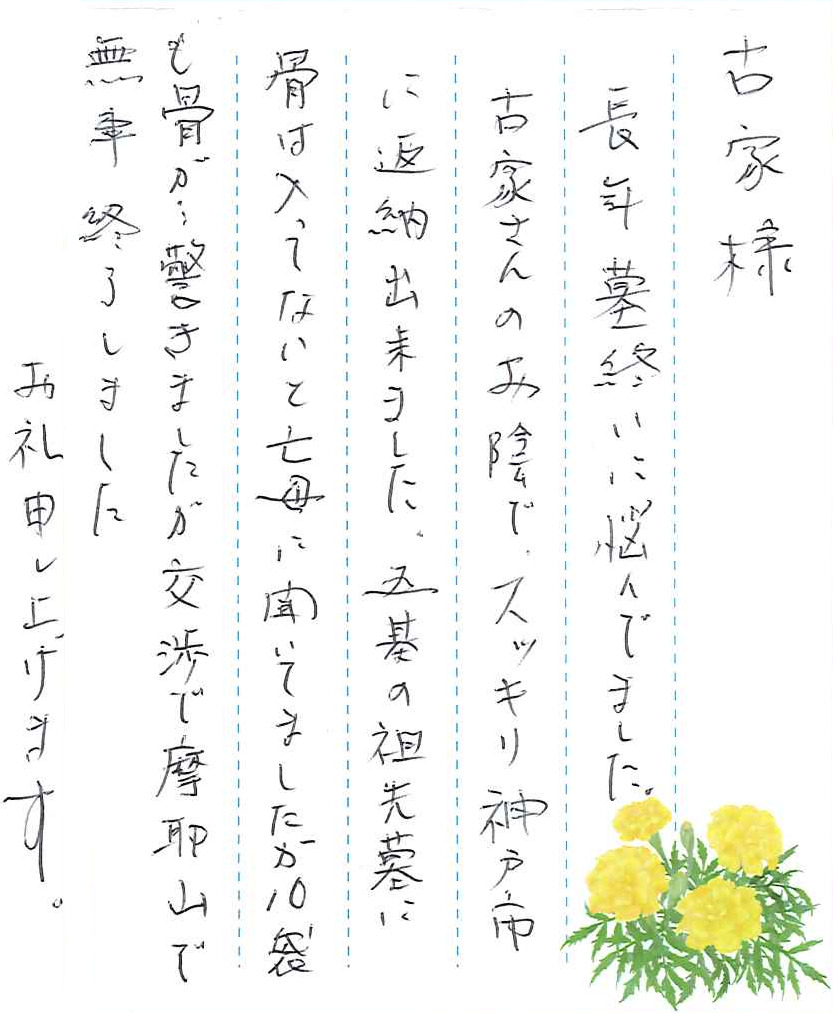 古家様
長年墓終いに悩んでました。
古家さんのお陰で、スッキリ神戸市
に返納出来ました。五基の祖先墓に
骨は入ってないと亡母に聞いてましたが10袋
も骨が…驚きましたが交渉で摩耶山で
無事終了しました
お礼申し上げます。